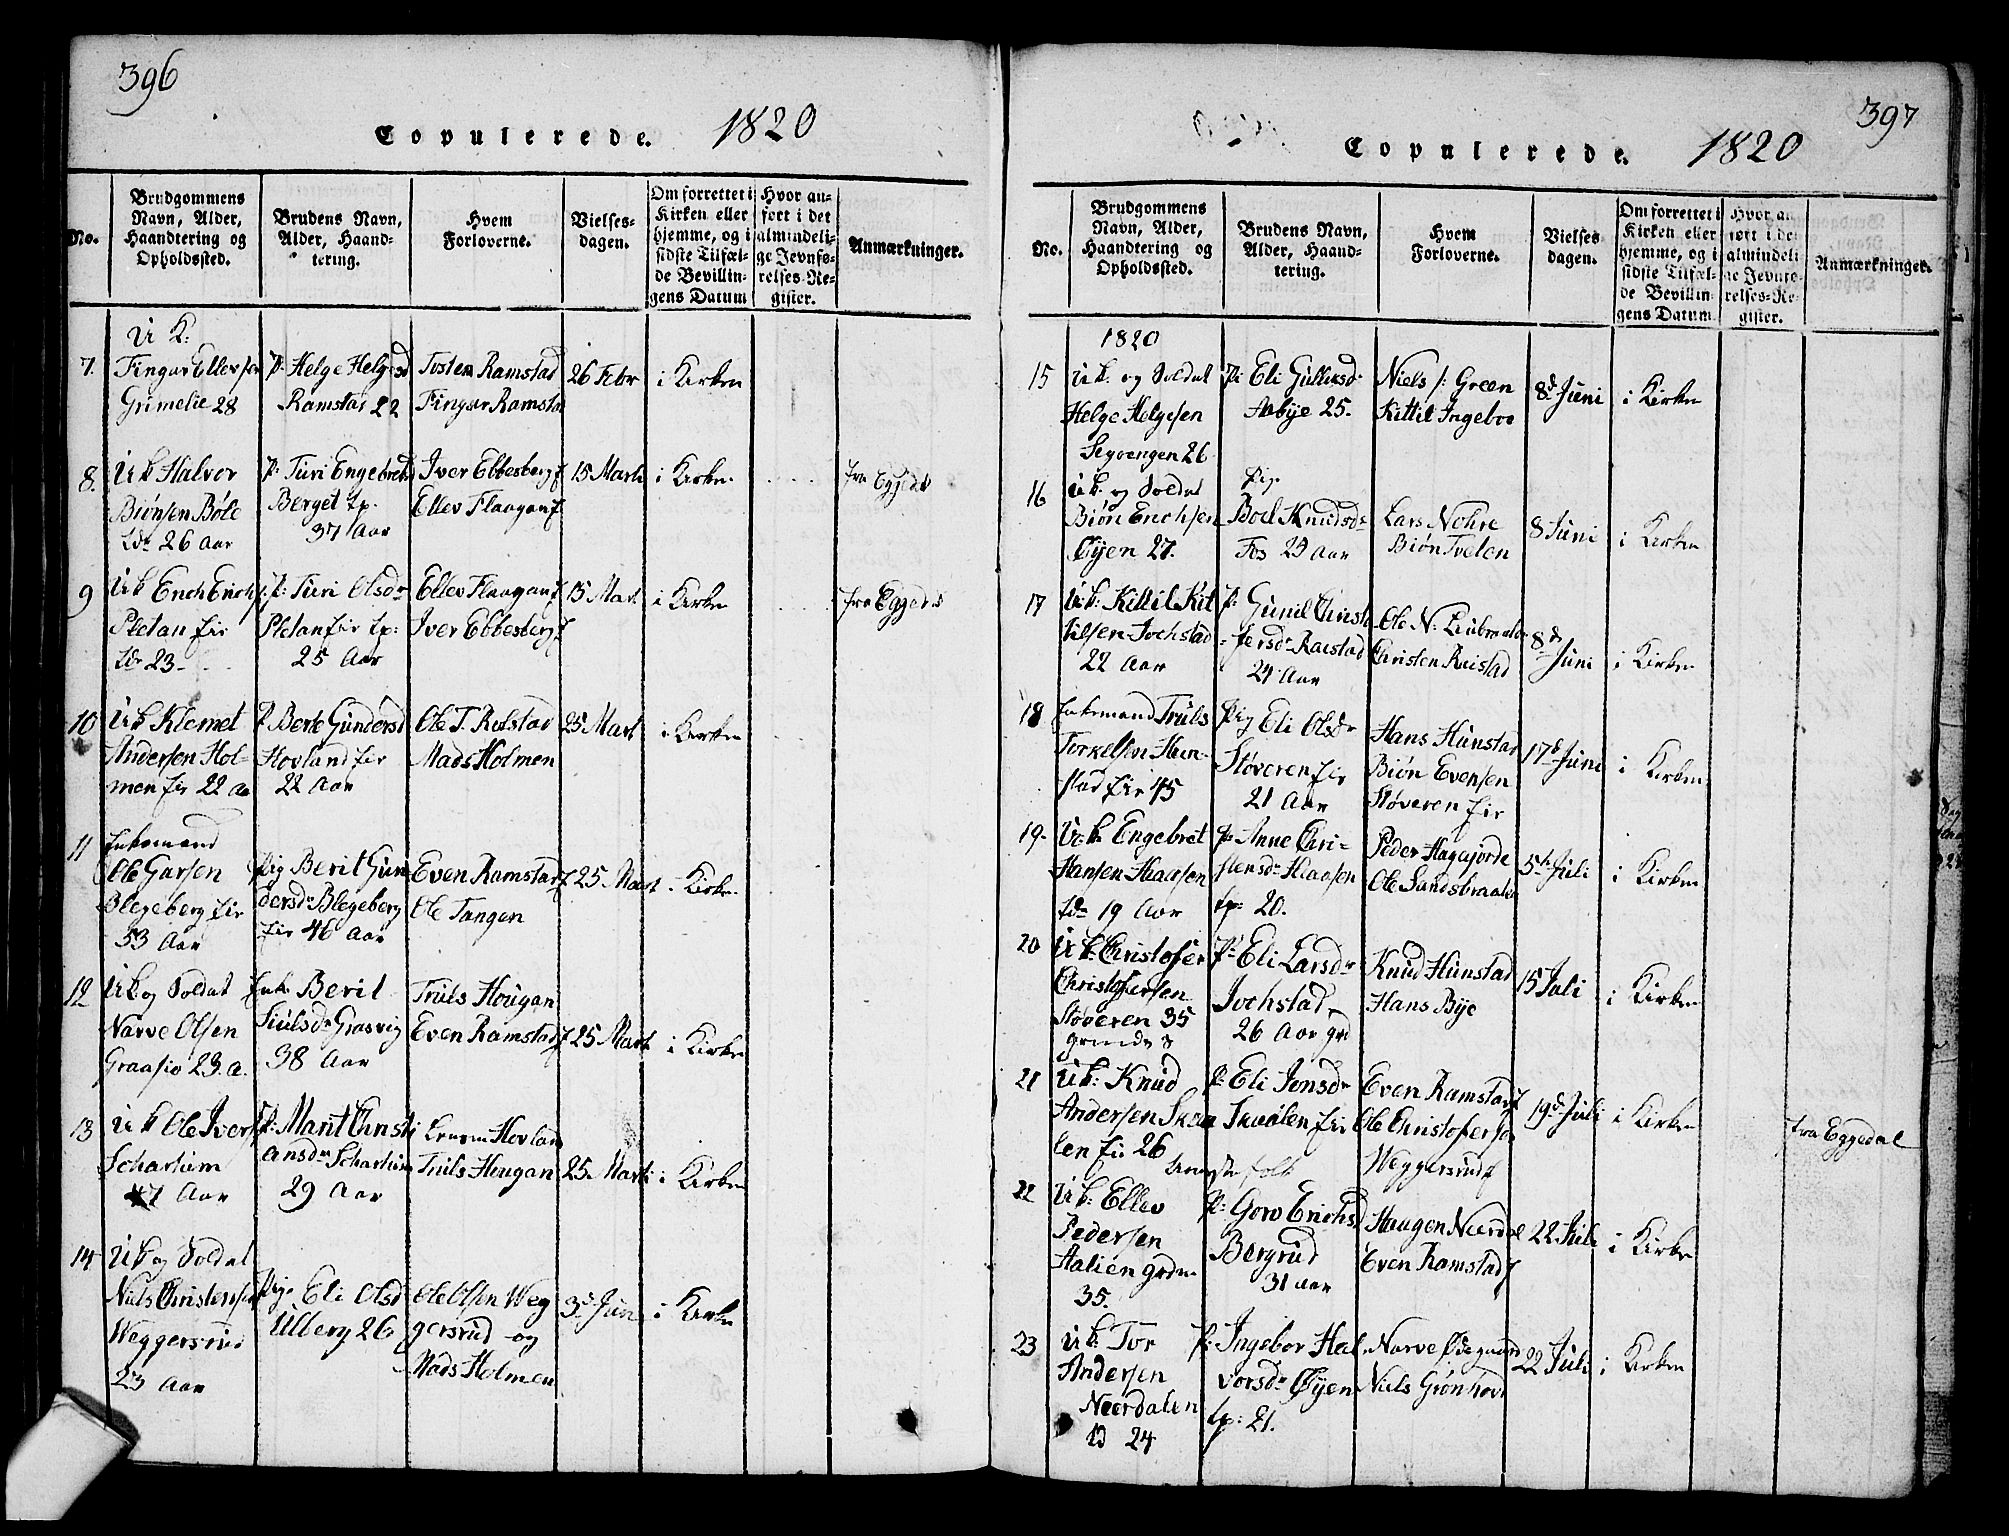 396
Copulerede. 1820
No.
Brudgommens
Navn, Alder,
Haandtering og
Opholdssted.
Brudens Navn,
Alder, Haand-
tering.
Hvem
Forloverne.
Vielses-
dagen.
Om forrettet i
Kirken eller
hjemme, og i
sidste Tilfæl-
de Bevillin-
gens Datum
Hvor an-
ført i det
almindeli-
ge Jevnfø-
relses-Re-
gister.
Anmærkninger.
U K:
7. Fingar Ellevsen
Grimelie 28
P: Helge Helgesd
Ramstad 22
Tosten Ramstad
Fingar Ramstad
26 Febr
i Kirken
8. U k Halvor
Biønsen Bøle
26 Aar
P: Turi Engebretsd
Berget tp.
37 Aar
Iver Ebbesberg
Ellev Flaagan
15 Marti
i Kirken
fra Eggedal
9 U k Erich Erichs
Pletan fir
23
P: Turi Olsdr
Pletan fir tp:
25 Aar
Ellev Flaagan
Iver Ebbesberg
15 Mart
i Kirken
fra Eggedal
10 U k Klemet
Andersen Hol-
men fir 22 a
P Berte Gundersd
Hovland fir
22 Aar
Ole T. Rolstad
Mads Holmen
25 Mart
i Kirken
11 Enkemand
Ole Garsen
Blegeberg fir
53 Aar
Pig Berit Gun
dersdr Blegeberg
fir 46 aar
Even Ramstad
Ole Tangen
25 Mart
i Kirken
12 U k og Soldat
Narve Olsen
Graasio 23. a.
Enk. Berit
Grosvig
38 Aar
Truls Hougan
Even Ramstad
25 Mart
i Kirken
13 U k Ole Ivers
Scharium
47 Aar
P: Marit Christi
ansdr Scharium
29 Aar
Hovland
Truls Hougan
25 Marti
i Kirken
14 U k og Soldat
Niels Christensen
Weggersrud
23 Aar
Pig. Eli Olsd
Ulberg 26
Ole Olsen Weg
gersrud og
Mads Holmen
3d Jun
i Kirken
397
Copulerede. 1820
No.
Brudgommens
Navn, Alder,
Haandtering og
Opholdssted.
Brudens Navn,
Alder, Haand-
tering.
Hvem
Forloverne.
Vielses
dagen.
Om forrettet i
Kirken eller
hjemme, og i
sidste Tilfæl-
de Bevillin-
gens Datum.
Hvor an
ført i det
almindeli
ge Jevnfø-
relses-Re-
gister.
Anmærkninger.
1820
15 U k. og Soldat
Helge Helgesen
Segrengen 26
P: Eli Gulliksdr
Aabye 25.
Niels s: Green
Kittil Ingeboe
8d Juni
i Kirken
16 U k. og Soldat
Biøn Erichsen
Øyen 27.
Pig.
Boel Knudsdr
Fos 23 aar
Lars Nohre
Biøn Tvelen
8 Juni
i Kirken
17 U k: Kittil Kit
tilsen Jochstad
22 Aar
P: Gunil Christ
fersdr Raastad
24 Aar
Ole N. Liubraaten
Christen Raistad
8d Juni
i Kirken
18 Enkemand Truls
Torkelsen Hun-
stad fir 45
Pig Eli Olsdr
Støveren fir
21 Aar
Hans Hunstad
Biøn Evensen
Støveren fir
17d Juni
i Kirken
19. U k. Engebret
Hansen Haasen
19 Aar
P: Anne Chri-
stensdr Haasen
tp: 20.
Peder Hagajorde
Ole Sandsbraaten
5te Juli
i Kirken
20 U k: Christofer
Christofersen
Støveren 35
P: Eli Larsdr
Jochstad
26 Aar grd
Knud Hunstad
Hans Bye
15 Juli
i Kirken
21 U k: Knud
Andersen Skaa
len fir 26
P: Eli Jonsdr
Skaalen fir
Even Ramstad
Ole Christofersen
Weggersrud
19d Juli
i Kirken
fra Eggedal
22 U k: Ellev
Pedersen
Halien grdm
35.
P: Goro Erichsd
Bergrud
31 aar
Haagen Neerdal
Even Ramstad
22 Juli
i Kirken
23 U k: Tor
Andersen
Neerdalen
24
P: Ingebor Hal
vorsdr Øyen
tp: 21.
Narve Ødegaard
Niels Grønhovd
22 Juli
i Kirken